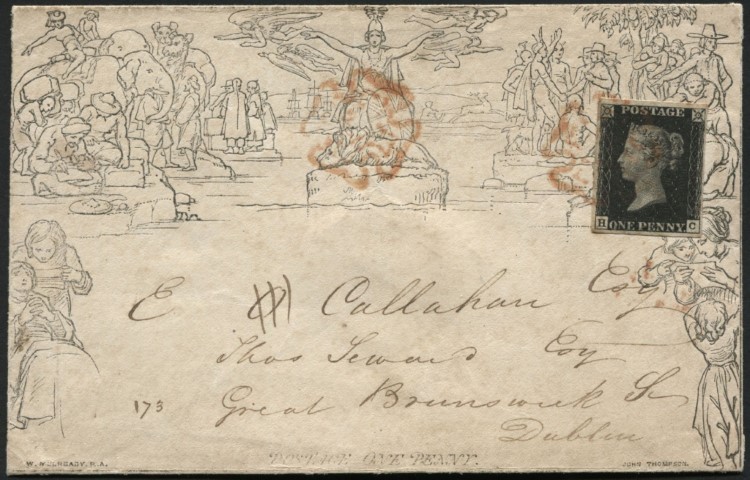 POSTAGE
H C
ONE PENNY
E Callahan Esq
Thos Seward Esq
173
Great Brunswick St
Dublin
POSTAGE ONE PENNY.
W. MULREADY, R.A.
JOHN THOMPSON.